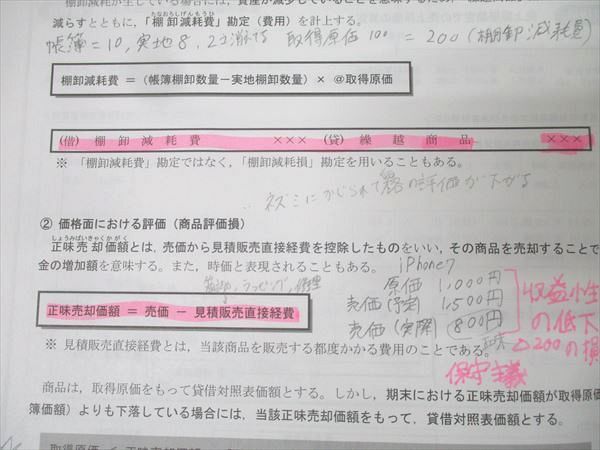 棚卸減耗が生じている場合には、資産が減少していることを意味するため、
たなおろしげんもうひ
減らすとともに、「棚卸減耗費」勘定(費用)を計上する。
帳簿=10, 実地8, 2コ 取得原価100 = 200(棚卸減耗費)
棚卸減耗費 =(帳簿棚卸数量－実地棚卸数量)× @取得原価
(借) 棚卸減耗費 ××× (貸) 繰越商品 ×××
※ 「棚卸減耗費」勘定ではなく,「棚卸減耗損」勘定を用いることもある。
ネズミにかじられて の評価が下がる
② 価格面における評価(商品評価損)
しょうみばいきゃくかがく
正味売却価額とは, 売価から見積販売直接経費を控除したものをいい, その商品を売却することで
金の増加額を意味する。また, 時価と表現されることもある。
iPhone7
ラッピング, 修理
原価 1,000円
売価(予定) 1,500円
売価(実際) 800円
正味
収益性
の低下
△200の損
保守主義
正味売却価額 = 売価 － 見積販売直接経費
※ 見積販売直接経費とは, 当該商品を販売する都度かかる費用のことである。
商品は, 取得原価をもって貸借対照表価額とする。しかし, 期末における正味売却価額が取得原価(
簿価額)よりも下落している場合には, 当該正味売却価額をもって, 貸借対照表価額とする。